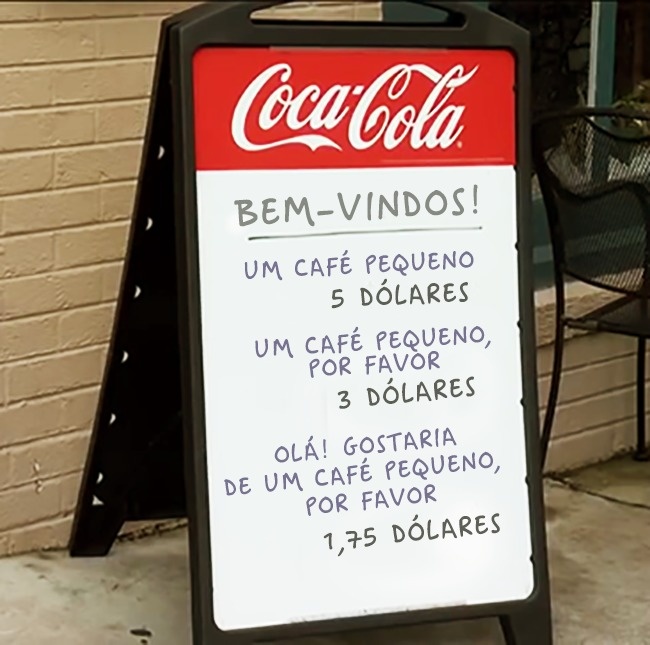 Coca-Cola
BEM-VINDOS!
UM CAFÉ PEQUENO
5 DÓLARES
UM CAFÉ PEQUENO,
POR FAVOR
3 DÓLARES
OLÁ! GOSTARIA
DE UM CAFÉ PEQUENO,
POR FAVOR
1,75 DÓLARES